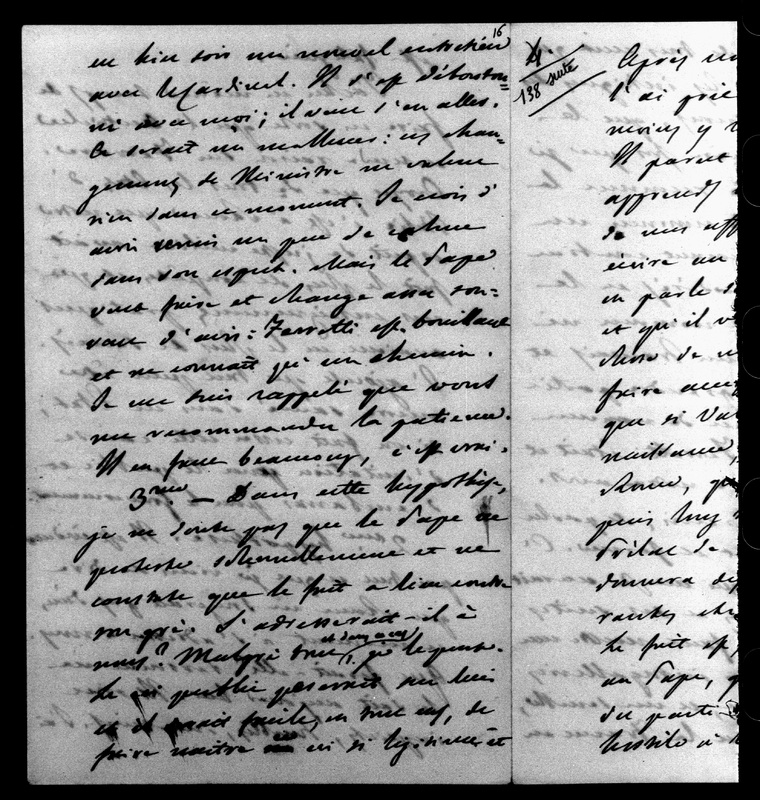 16
eu hier soir un nouvel entretien
avec le Cardinal. Il s'est déboutonné
avec moi; il veut s'en aller.
Ce serait un malheur: ces chan-
gements de Ministre ne valent
rien dans ce moment. Je crois d'
avoir remis un peu de calme
dans son esprit. Mais le Pape
veut faire et change assez sou-
vent d'avis: Ferretti est bouillant
et ne connait qu'un chemin.
Je me suis rappelé que vous
me recommandez la patience.
Il en faut beaucoup, c'est vrai.
3me — Dans cette hypothèse,
je ne doute pas que le Pape ne
proteste solennellement et ne
constate que le fait a lieu contre
son gré. S'adresserait-il à
nous? Malgré tout
le public
et il serait facile, en tout cas, de
faire naitre si légitime et
4.
138 suite
Après
l'ai prié
moins y
Il parait
apprendre
de nos
écrire un
en parle
et qu'il
chose de
faire
que si
naissance,
Rome,
puis
Prélat de
donnera
Le fait est,
au Pape,
du parti
hostile à